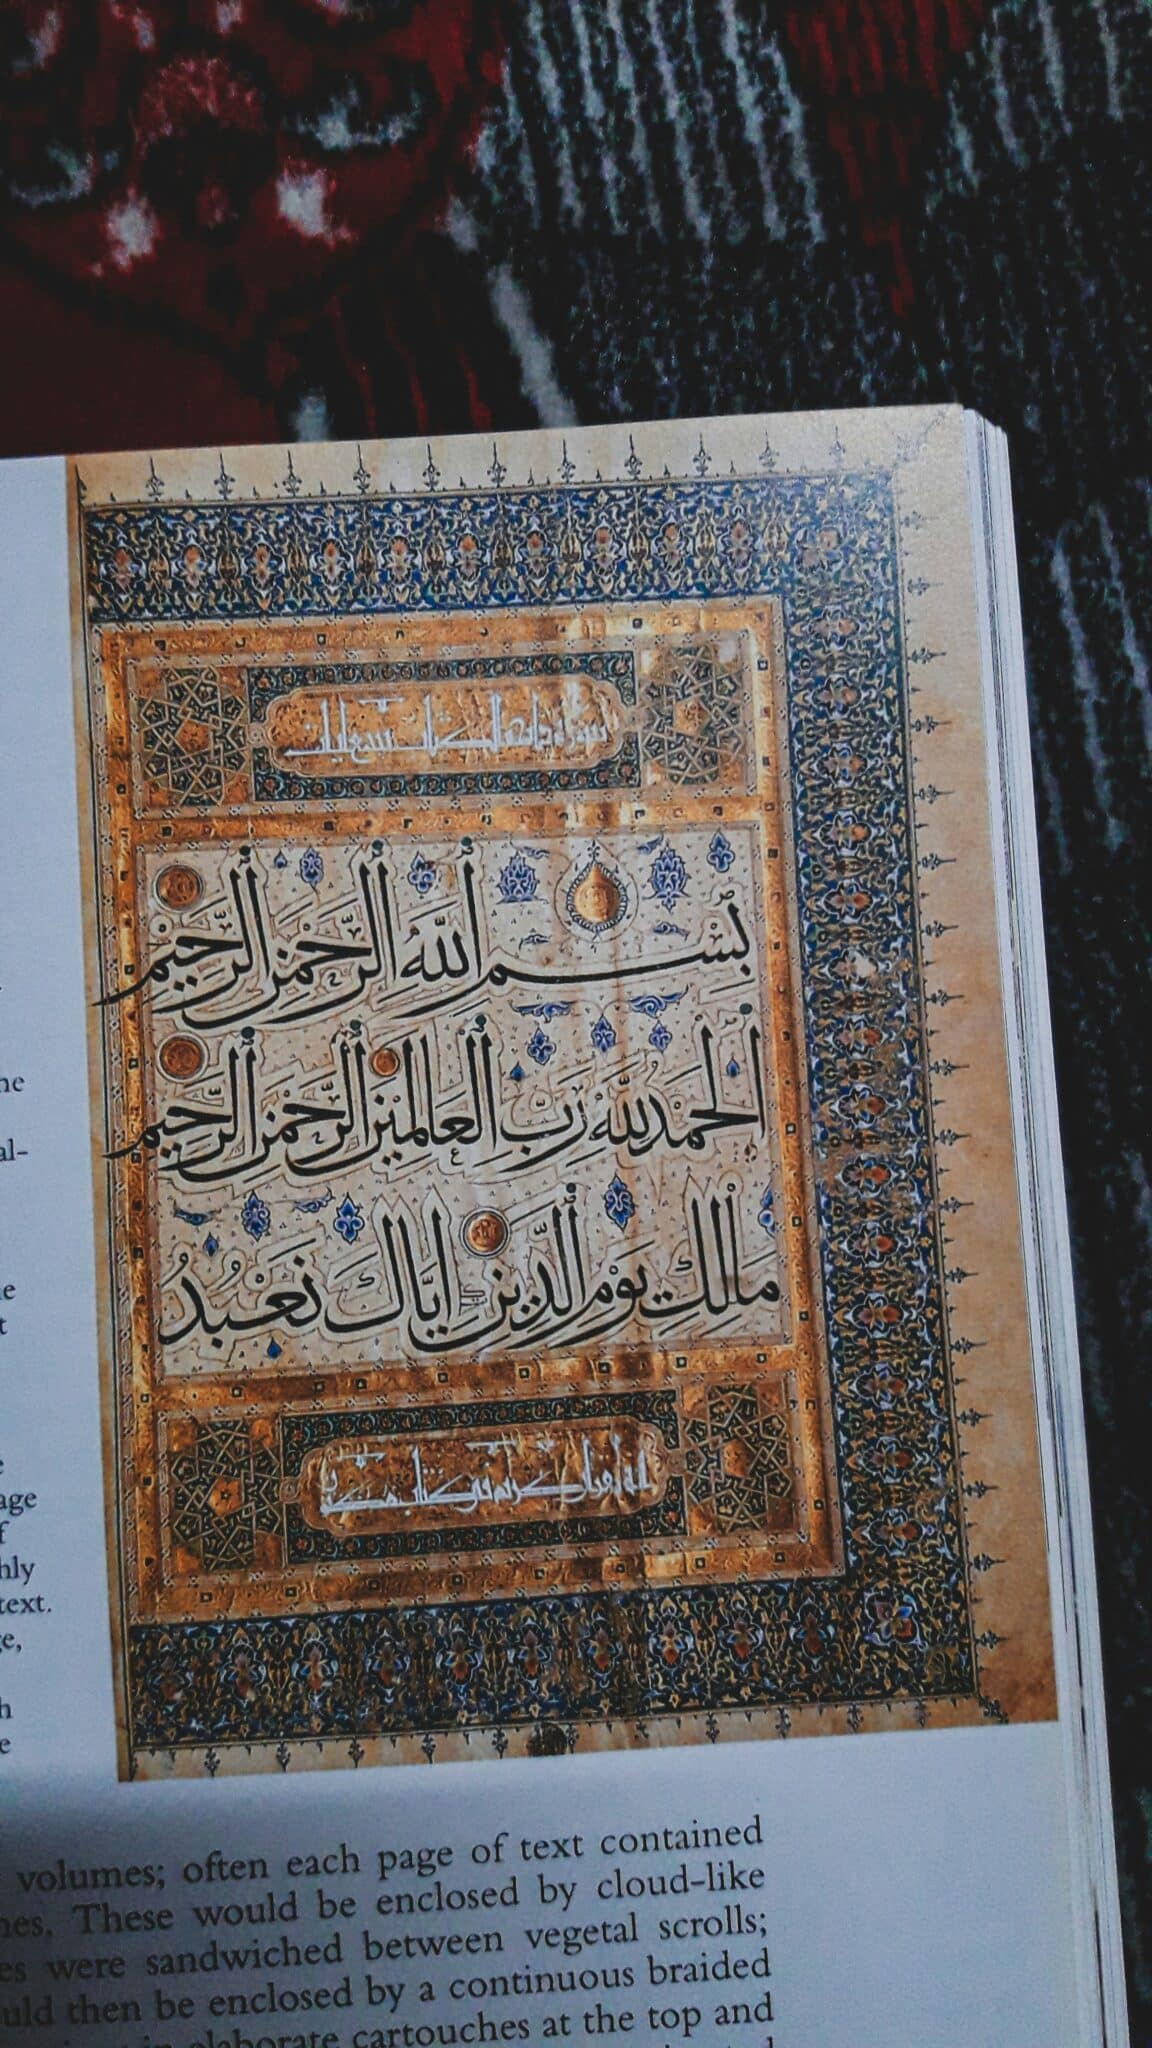 سورة فاتحة الكتاب سبع ايات
بِسْمِ اللَّهِ الرَّحْمٰنِ الرَّحِيمِ
اَلْحَمْدُ لِلَّهِ رَبِّ الْعَالَمِينَ الرَّحْمٰنِ الرَّحِيمِ
مَالِكِ يَوْمِ الدِّينِ اِيَّاكَ نَعْبُدُ
انه لقران كريم في كتاب مكنون
he
al-
e
t
e
age
f
hly
text.
e,
h
e
volumes; often each page of text contained
These would be enclosed by cloud-like
were sandwiched between vegetal scrolls;
then be enclosed by a continuous braided
in elaborate cartouches at the top and